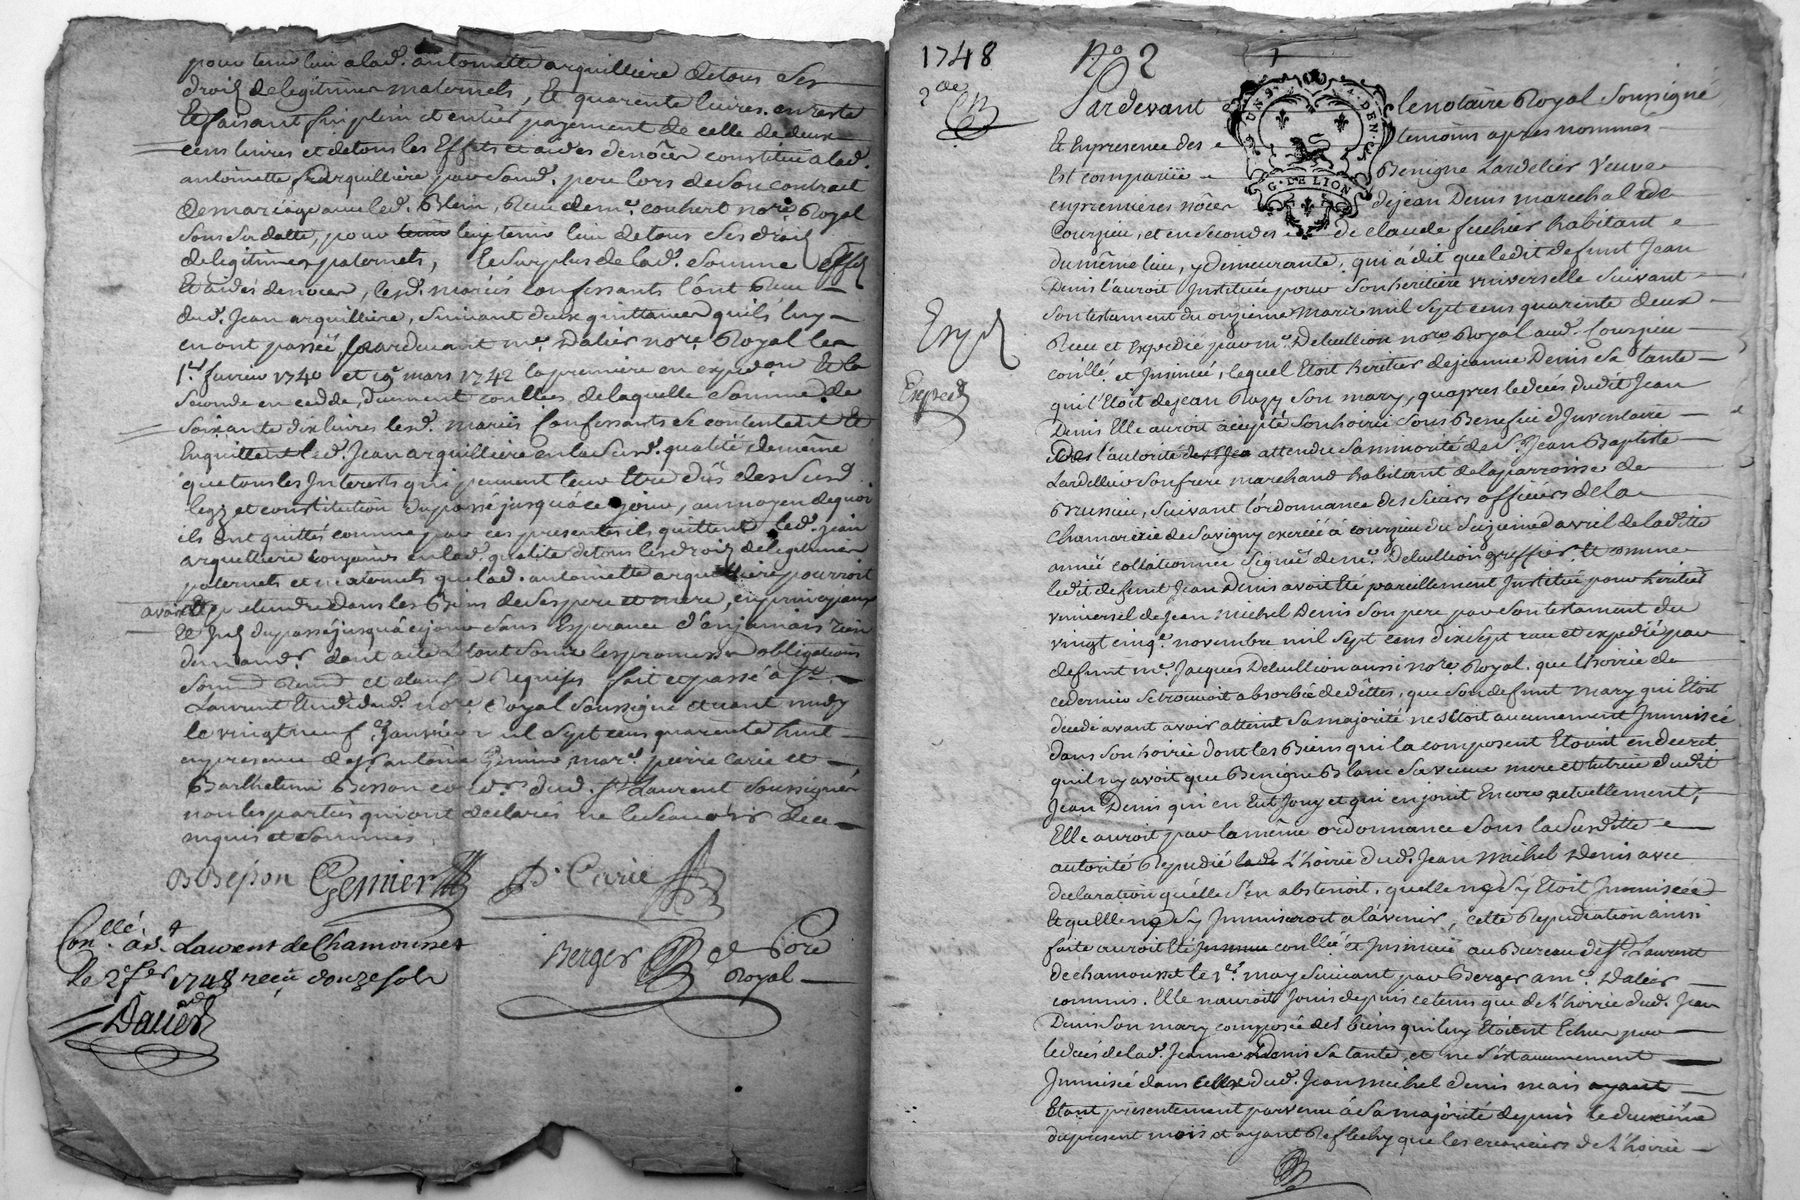 pour tenir lieu a lad. antoinette arquilliere de tous ses
droits de legitimes maternels, Et quarente livres en reste
Et faisant fin plein et entier payement de celle de deux
cens livres et de tous les Effets et aides de nôces constitué a lad.
antoinette arquilliere par sond. pere lors de son contrait
de mariage avec led. Blein, Reçu de me. couhert nore. Royal
sous sa datte, pour luy tenir lieu de tous ses droits
de legitimes paternels, le surplus de lad. somme Effets
Et aides de nôces, lesd. mariés confessants l'ont Reçu
dud. Jean arquilliere, suivant deux quittances qu'ils luy
en ont passée pardevant me. Dalier nore. Royal les
1er. fevrier 1740 et 19 mars 1742 la premiere en expedon Et la
seconde en cedde, duement conllées de laquelle somme de
soixante dix livres lesd. mariés confessants se contentent Et
Enquittent led. Jean arquilliere en la susd. qualité, de même
que tous les Interests qui peuvent leur Etre dûs des susd
legs et constitution du passé jusqu'a ce jour, au moyen de quoi
ils ont quittés comme par ces presentes ils quittent led. jean
arquilliere en lad. qualité de tous les droits de legitimes
paternels et maternels que lad. antoinette arquilliere pourroit
avoir Et pretendre dans les Biens de ses pere et mere, en principaux
Et Inst du passé jusqu'a ce jour sans Esperance d'en jamais rien
demander dont acte
et clauses Requises fait et passé à St.
Laurent Etude dud. nore. Royal soussigné avant midy
le vingt neuf Janvier mil sept cens quarente huit
en presence de Sr antoine Gemier, mard. pierre carie et
Barthelemi Besson dud. St Laurent soussignés
non les parties qui ont declarés ne le sçavoir de ce
enquis et sommés
B Besson Gemier P. Carie
Conllé. à St Laurent de Chamousset
le 2 fer 1748 reçu douze sols
Dalier
Berger nore Royal
1748 No 2 1
2de
Pardevant le notaire Royal soussigné
Et En presence des temoins apres nommés
Est comparüe Benigne Lardelier veuve
en premieres nôces de jean Denis marechal de
Courzieu, et en secondes de claude fuchier habitant
du même lieu, y demeurante, qui à dit que ledit defunt Jean
Denis l'auroit Instituée pour son heritiere universelle suivant
son testament du onzieme mars mil sept cens quarente deux
Expd
Reçu et Expedié par me. Deluillion nore Royal aud. Courzieu
conllé et Insinué, lequel Etoit heritier de jeanne Denis sa tante
Expedé
qui l'Etoit de jean Razy son mary, qu'apres le decès dudit Jean
Denis Elle auroit acepté son hoirie sous Benefice d'Inventaire
de l'autorité attendu sa minorité de Sr. Jean Baptiste
Lardellier son frere marchand habitant de la parroisse de
Brussieu, suivant l'ordonnance des sieurs officiers de la
Chamarerie de Savigny exercée à courzieu du seizieme avril de laditte
année collationnée signée de me. Deluillion greffier. Et comme
ledit defunt Jean Denis avoit Eté pareillement Institué pour heritier
universel de Jean michel Denis son pere par son testament du
vingt cinqe. novembre mil sept cens dix sept reçu et expedié par
defunt me. Jacques Deluillion aussi nore Royal. que l'hoirie de
ce dernier se trouvoit absorbée de dettes, que son defunt mary qui Etoit
decedé avant avoir atteint sa majorité ne s'Etoit aucunement Immiscé
dans son hoirie dont les Biens qui la composent Etoient en decret
qu'il n'y avoit que Benigne Blanc sa veuve mere et tutrice dudit
Jean Denis qui en Eut Jouy et qui en jouit Encore actuellement;
Elle auroit par la même ordonnance sous la susditte
autorité Repudié l'hoirie dud. Jean michel Denis avec
declaration qu'elle s'en abstenoit, qu'elle ne s'y Etoit Immiscée
Et qu'elle ne s'y Immisceroit a l'avenir, cette Repudiation ainsi
faite auroit Eté conllée et Insinuée au Bureau de St Laurent
de chamousset le 1er. may suivant par Berger a me. Dalier
commis. Elle n'auroit Jouis depuis ce tems que de l'hoirie dud. Jean
Denis son mary composée des biens qui luy Etoient Echus par
le decès de lad. Jeanne Denis sa tante, et ne s'est aucunement
Immiscée dans celle dud. Jean michel denis mais ayant
Etant presentement parvenu à sa majorité depuis le deuxieme
du present mois et ayant Reflechy que les creanciers de l'hoirie
G. DE LION